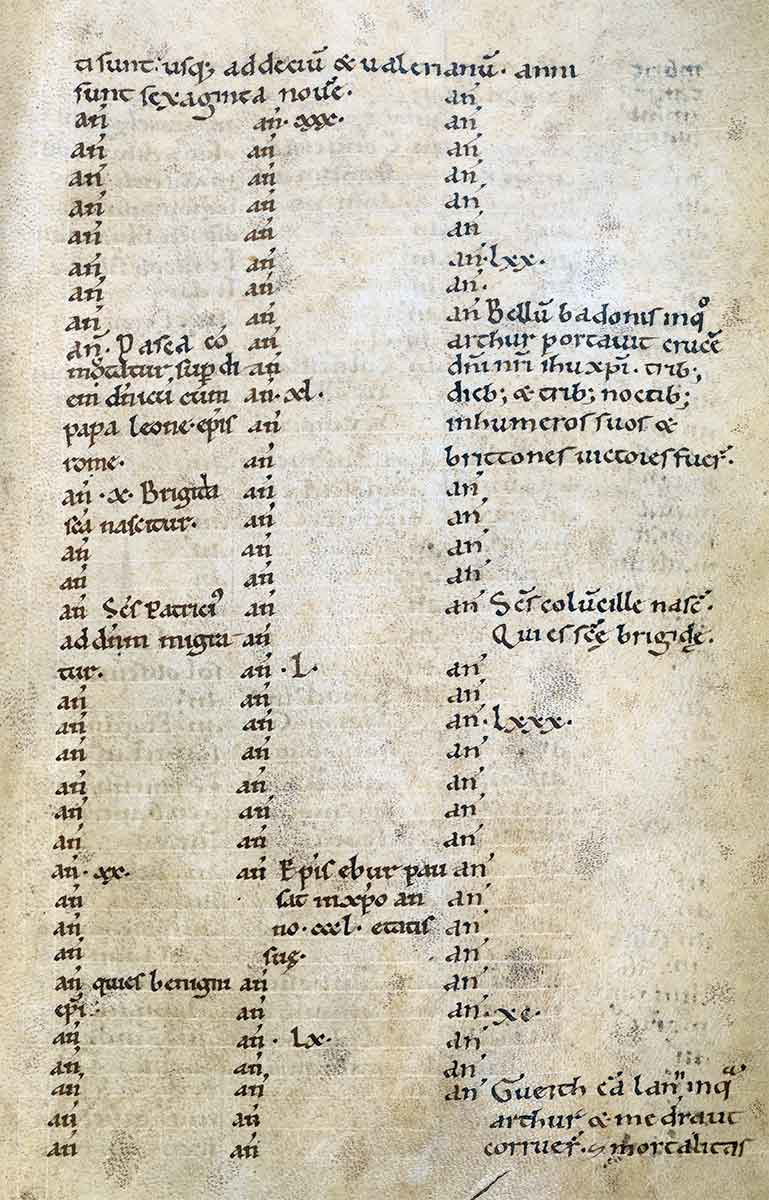 ti sunt: usq; ad deciū & valerianū. anni
sunt sexaginta nouē.
an̄
an̄
an̄
an̄
an̄
an̄
an̄
an̄
an̄. Pasca cō
mo&atur sup̄ di
em dn̄icū cum
papa leone. ep̄is
rome.
an̄ .x. Brigida
sc̄a nascitur.
an̄
an̄
an̄ Sc̄s Patriciꝰ
ad dn̄m migra
tur.
an̄
an̄
an̄
an̄
an̄
an̄
an̄ .xx.
an̄
an̄
an̄
an̄ quies benigni
ep̄i.
an̄
an̄
an̄
an̄
an̄
an̄ .xxx.
an̄
an̄
an̄
an̄
an̄
an̄
an̄
an̄
an̄
an̄ .xl.
an̄
an̄
an̄
an̄
an̄
an̄
an̄
an̄
an̄ .L.
an̄
an̄
an̄
an̄
an̄
an̄
an̄ Ep̄is ebur pau
sat in xp̄o an
no .cccl. etatis
suę.
an̄
an̄
an̄ .lx.
an̄
an̄
an̄
an̄
an̄
an̄
an̄
an̄
an̄
an̄
an̄ .lxx.
an̄.
an̄ Bellū badonis inqͦ
arthur portauit crucē
dn̄i nr̄i ihu xp̄i. trib;
dieb; & trib; noctib;
in humeros suos &
brittones uictores fuer̄.
an̄
an̄
an̄
an̄
an̄ Sc̄s colūcille nasc̄.
Quies sc̄ę brigidę.
an̄
an̄
an̄ .lxxx.
an̄
an̄
an̄
an̄
an̄
an̄
an̄
an̄
an̄
an̄ .xc.
an̄
an̄
an̄ Gueith cālann inqᵃ
arthur & medraut
corruer̄. & mortalitas